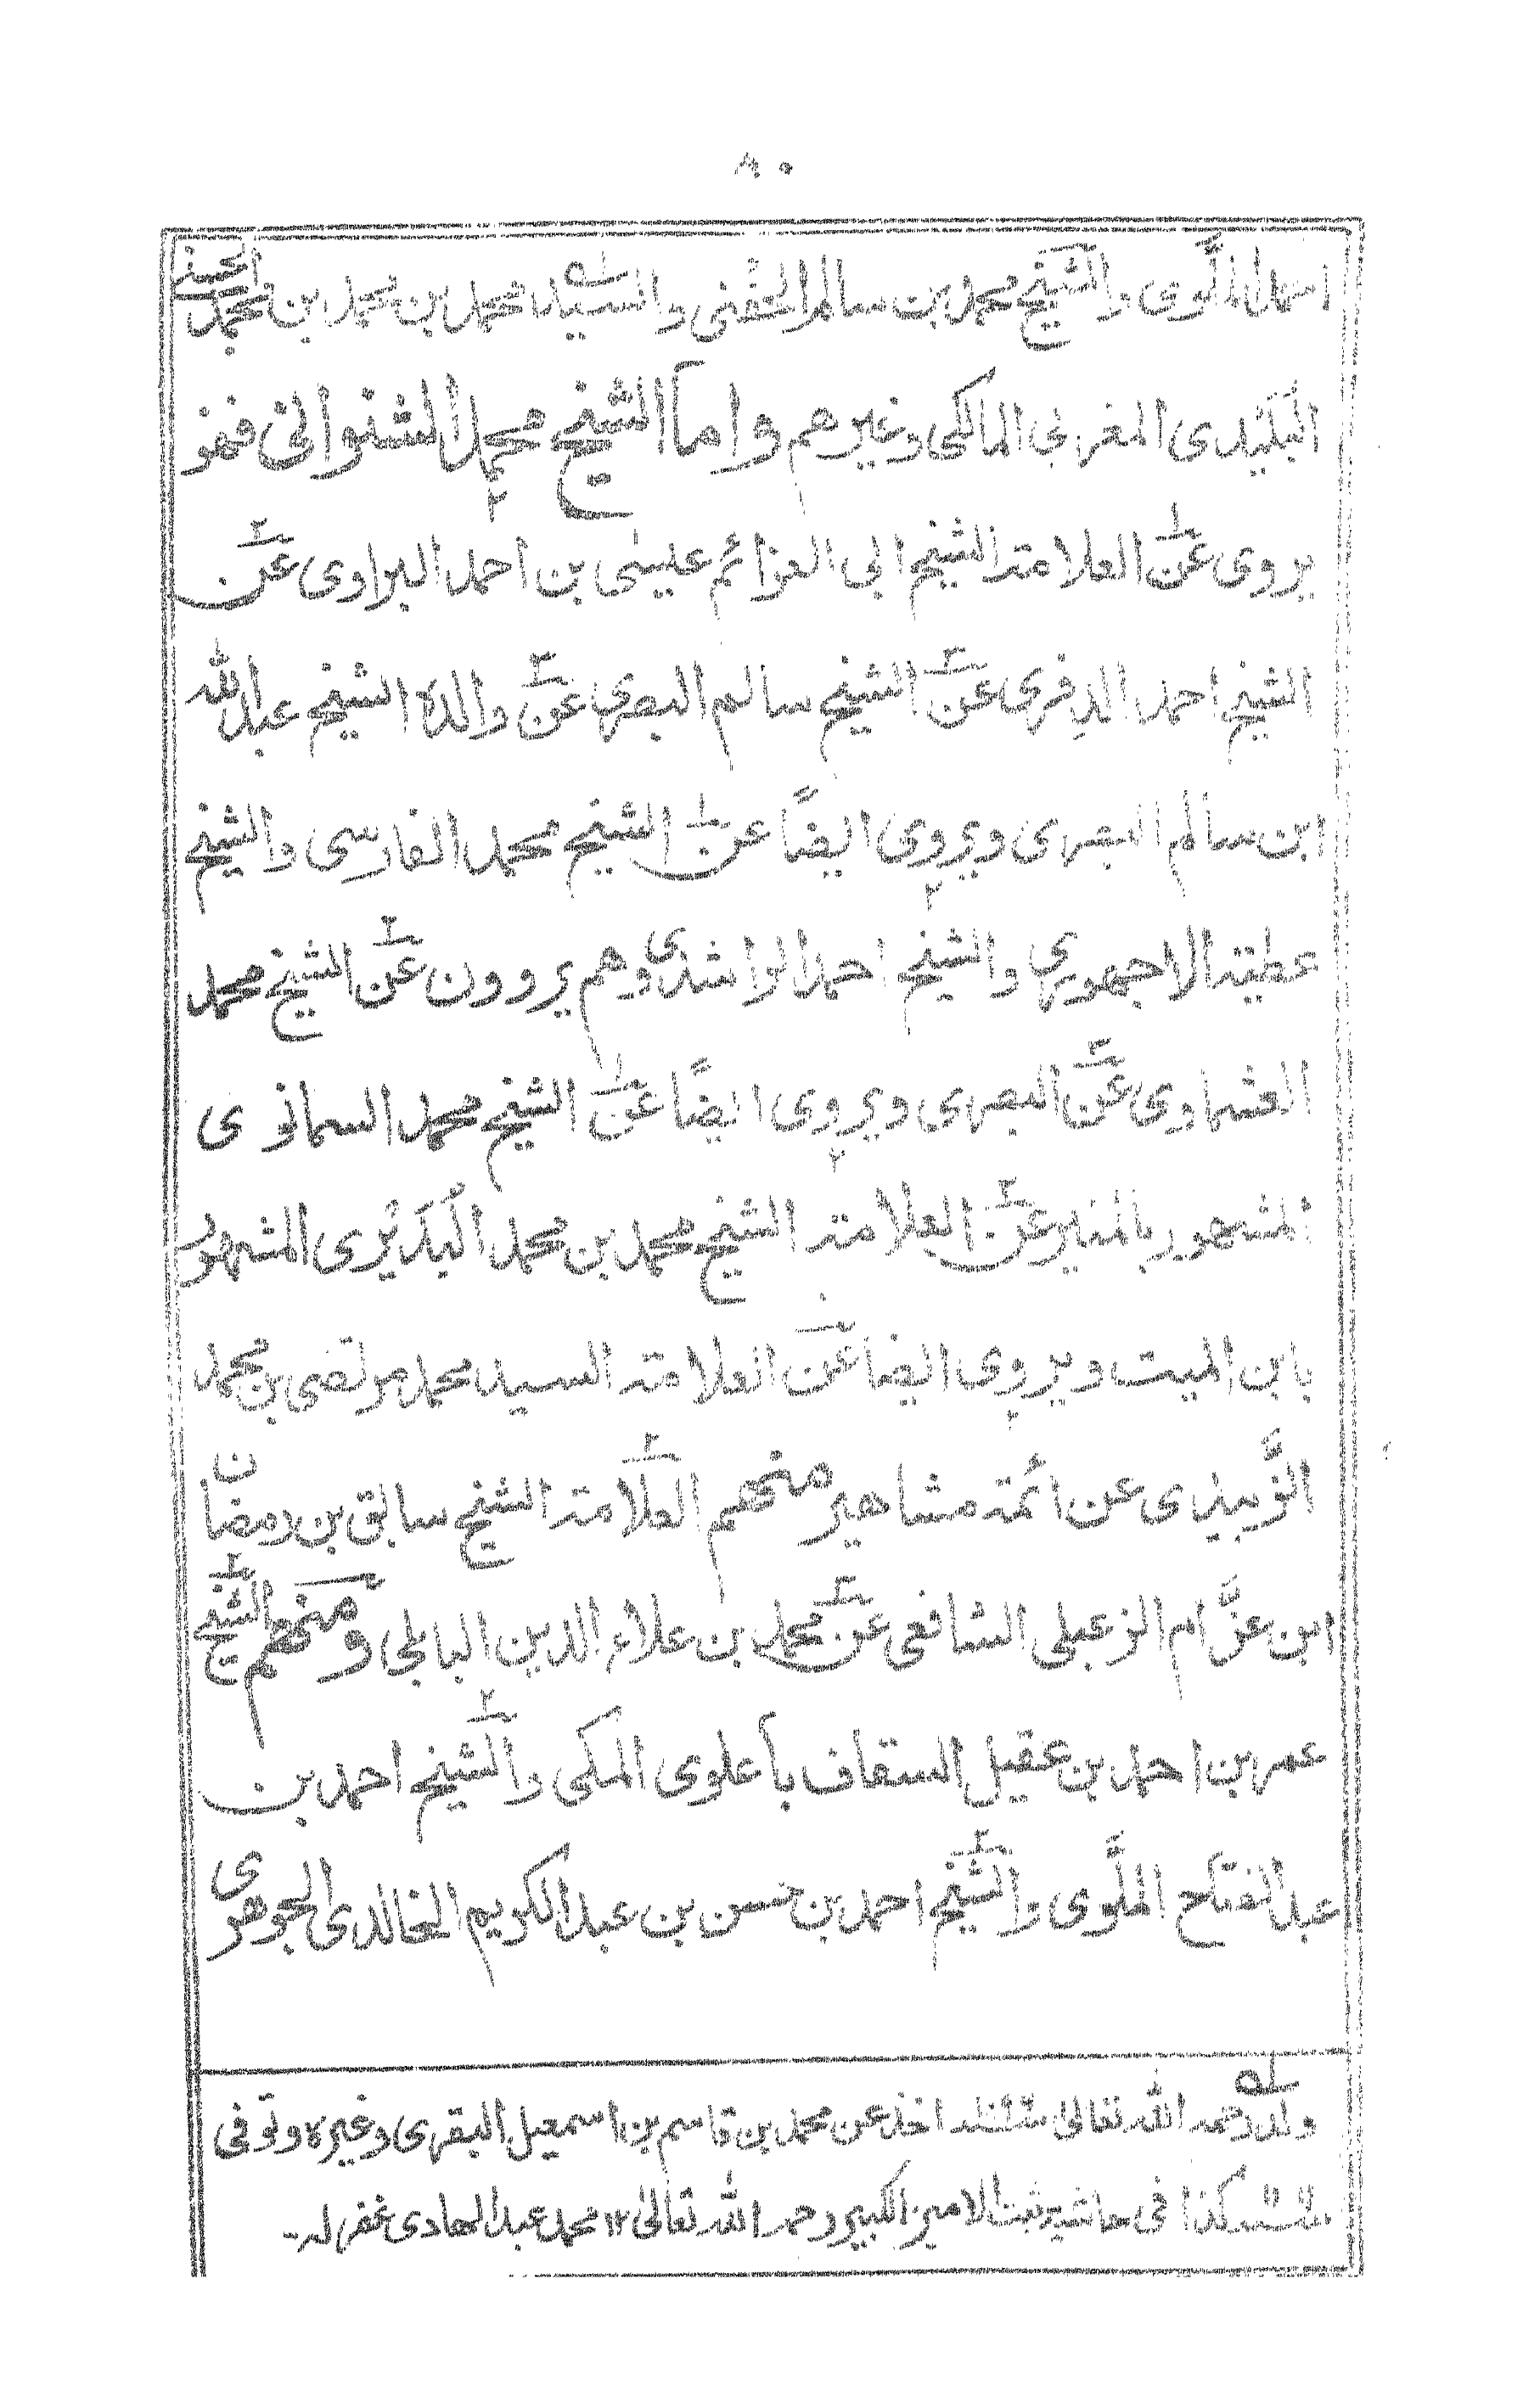 ٨٠
احمد الملَّوی والشیخ محمد بن سالم الحفنی والسید محمد بن محمد بن محمد الحسنی
البَلیدی المغربی المالکی وغیرهم واما الشیخ محمد الشنوانی فهو
یروی عن العلامة الشیخ ابی العزائم عیسٰی بن احمد البراوی عن
الشیخ احمد الدفری عن الشیخ سالم البصری عن والده الشیخ عبد الله
ابن سالم البصری ویروی ایضًا عن الشیخ محمد الفارسی والشیخ
عطیة الاجهوری والشیخ احمد الراشدی وهم یروون عن الشیخ محمد
العشماوی عن البصری ویروی ایضًا عن الشیخ محمد السمانوی
المشهور بالمنیر عن العلامة الشیخ محمد بن محمد البُدَیْری المشهور
بابن المیت ویروی ایضا عن العلامة السید محمد مرتضی بن محمد
الزَّبیدی عن ائمة مشاهیر منهم العلامة الشیخ سابق بن رمضان
ابن عزَّام الزعبلی الشافعی عن محمد بن علاء الدین البابلی ومنهم الشیخ
عمر بن احمد بن عقیل السقاف بأعلوی المکی والشیخ احمد بن
عبد الفتاح الملَّوی والشیخ احمد بن حسن بن عبد الکریم الخالدی الجوهری
ولد رحمه الله تعالیٰ اخذ عن محمد بن قاسم بن اسمعیل البقری وغیره وتوفی
کذا فی حاشیة ثبت الامیر الکبیر رحمه الله تعالیٰ ١٢ محمد عبد الهادی غفر له-